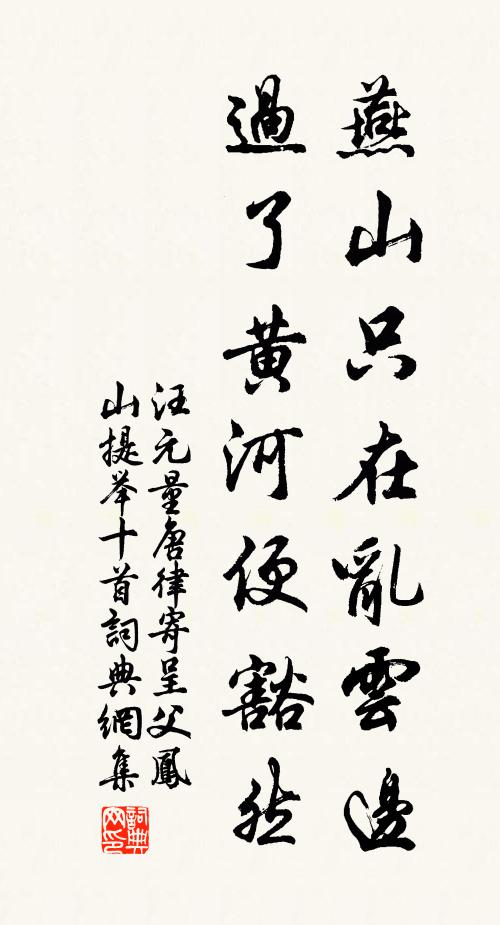 燕山只在亂雲邊
過了黃河便豁然
汪元量唐律寄呈父鳳
山提举十首詞典網集
詞典
网印